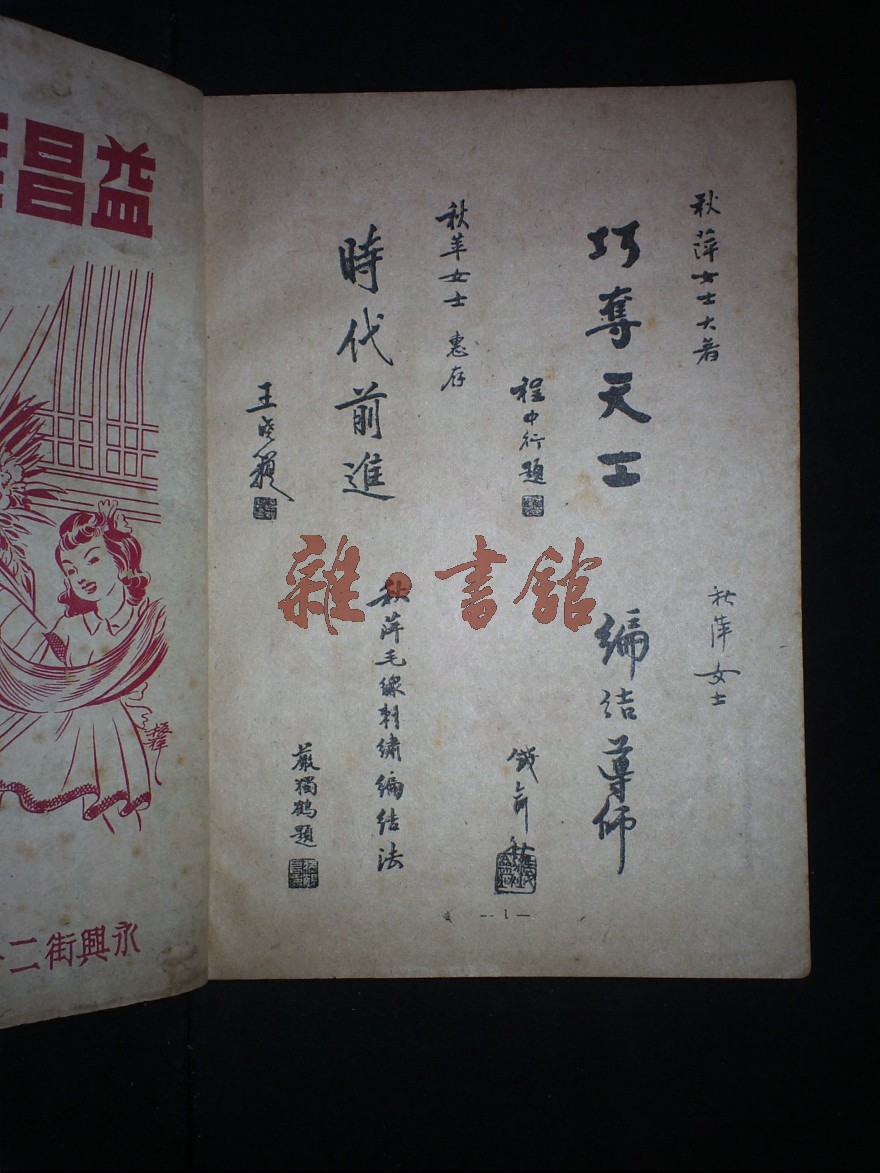 秋萍女士大著
巧奪天工
程中行題
秋苹女士 惠存
時代前進
王
秋萍女士
編结導師
錢
秋萍毛線刺繡編结法
嚴獨鶴題
— 1 —
雜·書館
益昌
永興街二